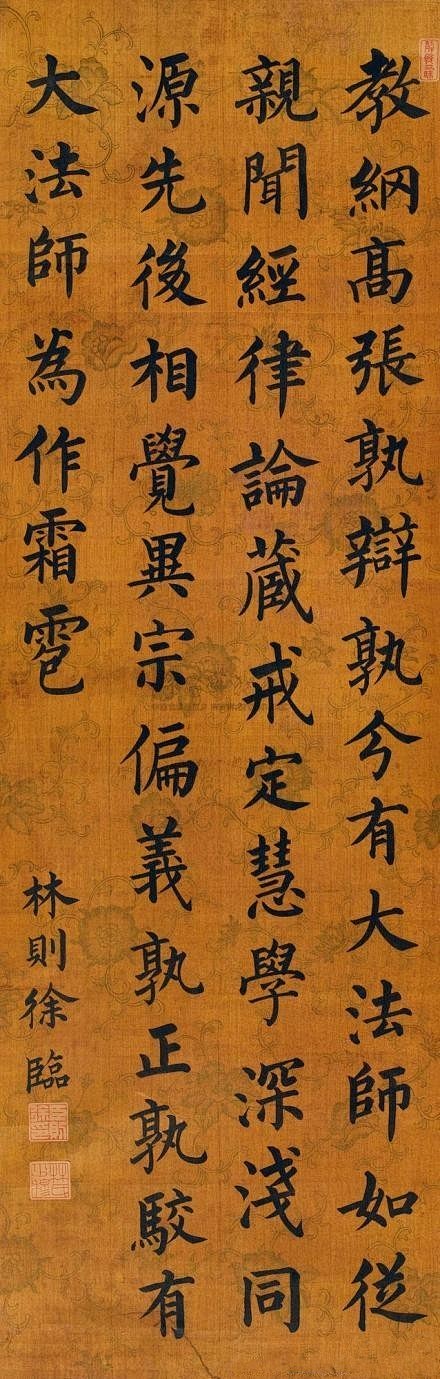 教綱高張孰辯孰今有大法師如從
親聞經律論藏戒定慧學深淺同
源先後相覺異宗偏義孰正孰駮有
大法師為作霜雹
林則徐臨